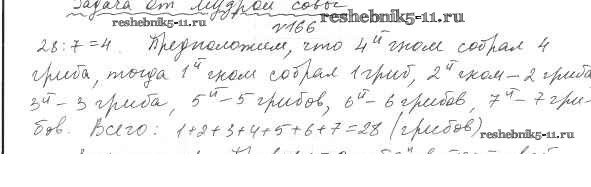 Задача от мудрой совы
www.reshebnik5-11.ru www.reshebnik5-11.ru
№166
28:7=4. Предположим, что 4й гном собрал 4
гриба, тогда 1й гном собрал 1 гриб, 2й гном – 2 гриба
3й – 3 гриба, 5й – 5 грибов, 6й – 6 грибов, 7й – 7 гри-
бов. Всего: 1+2+3+4+5+6+7=28 (грибов)
www.reshebnik5-11.ru